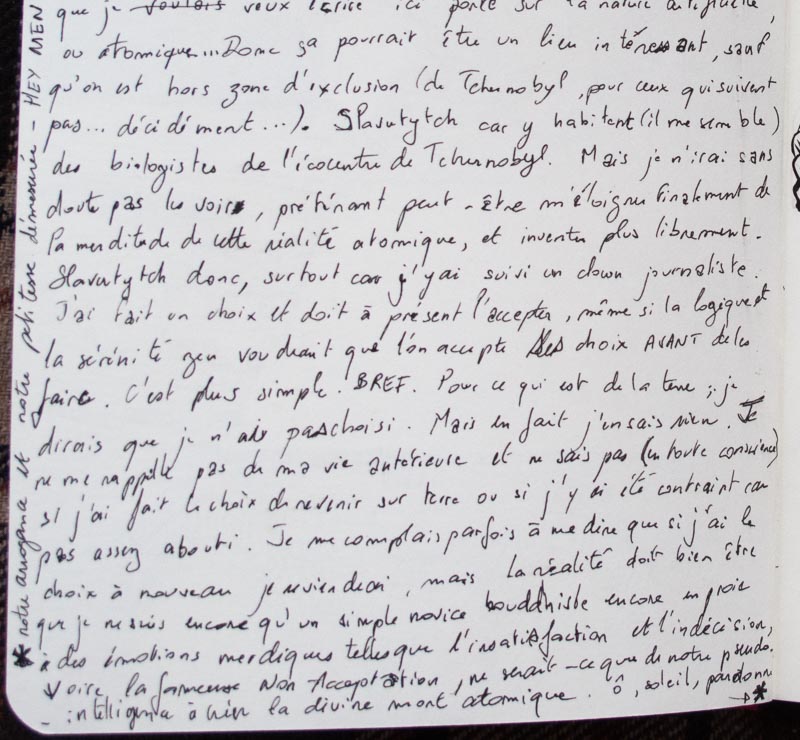 que je voulais veux écrire ici porte sur la nature artificielle,
ou atomique... Donc ça pourrait être un lieu intéressant, sauf
qu'on est hors zone d'exclusion (de Tchernobyl, pour ceux qui suivent
pas... décidément...). Slavutytch car y habitent (il me semble)
des biologistes de l'écocentre de Tchernobyl. Mais je n'irai sans
doute pas les voir, préférant peut-être m'éloigner finalement de
la merditude de cette réalité atomique, et inventer plus librement.
Slavutytch donc, surtout car j'y ai suivi un clown journaliste.
J'ai fait un choix et doit à présent l'accepter, même si la logique et
la sérénité zen voudraient que l'on accepte les choix AVANT de les
faire. C'est plus simple. BREF. Pour ce qui est de la terre ; je
dirais que je n'ai pas choisi. Mais en fait j'en sais rien. Je
ne me rappelle pas de ma vie antérieure et ne sais pas (en toute conscience)
si j'ai fait le choix de revenir sur terre ou si j'y ai été contraint car
pas assez abouti. Je me complais parfois à me dire que si j'ai le
choix à nouveau je reviendrai, mais la réalité doit bien être
que je ne suis encore qu'un simple novice bouddhiste encore en proie
à des émotions merdiques telles que l'insatisfaction et l'indécision,
voire la fameuse Non Acceptation, ne serait-ce que de notre pseudo-
intelligence à créer la divine mort atomique. Ô, soleil, pardonne
→*
* notre arrogance et notre petitesse démesurée - HEY MEN